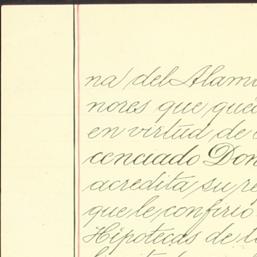 na del Alami
nores que que
en virtud de
cenciado Don
acredita su re
que le confirió
Hipoticas de